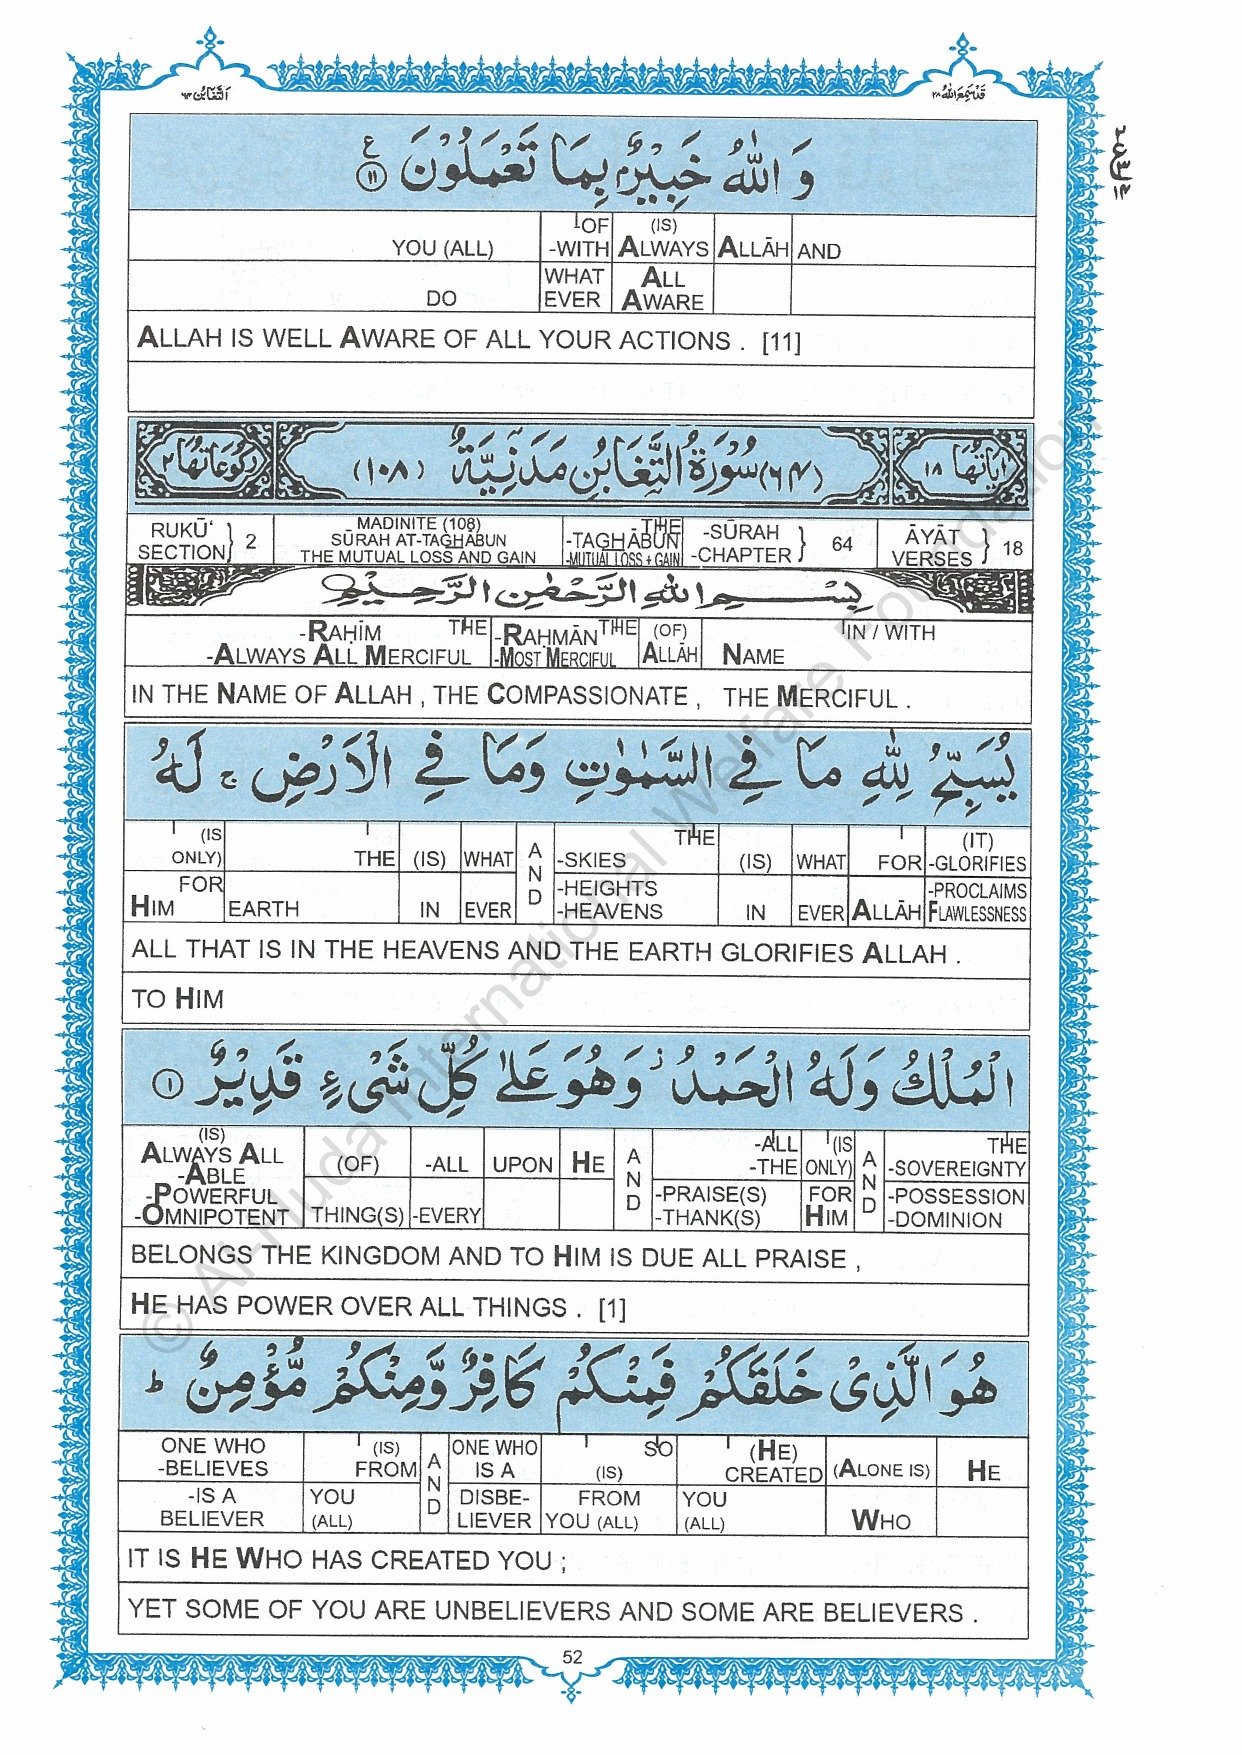 اَلتَّغَابُن ٦٤ قَدْ سَمِعَ اللّٰهُ ٢٨
وَ اللّٰهُ خَبِيْرٌۢ بِمَا تَعْمَلُوْنَ ﴿۱۱﴾ ع
YOU (ALL) -OF -WITH (IS) ALWAYS ALLĀH AND
DO WHAT EVER ALL AWARE
ALLAH IS WELL AWARE OF ALL YOUR ACTIONS . [11]
رُكُوْعَاتُهَا ٢ (٦٤) سُوْرَةُ التَّغَابُنِ مَدَنِيَّةٌ (١٠٨) اٰيَاتُهَا ١٨
RUKŪ‘ SECTION } 2 MADINITE (108) SŪRAH AT-TAGHĀBUN THE MUTUAL LOSS AND GAIN THE -TAGHĀBUN -MUTUAL LOSS + GAIN -SŪRAH -CHAPTER } 64 ĀYĀT VERSES } 18
بِسْمِ اللّٰهِ الرَّحْمٰنِ الرَّحِيْمِ
-RAḤĪM THE -RAḤMĀN THE (OF) IN / WITH
-ALWAYS ALL MERCIFUL -MOST MERCIFUL ALLĀH NAME
IN THE NAME OF ALLAH , THE COMPASSIONATE , THE MERCIFUL .
يُسَبِّحُ لِلّٰهِ مَا فِي السَّمٰوٰتِ وَمَا فِي الْاَرْضِ ج لَهُ
(IS ONLY) THE (IS) WHAT AND THE -SKIES (IS) WHAT FOR (IT) -GLORIFIES
FOR HIM EARTH IN EVER -HEIGHTS -HEAVENS IN EVER ALLĀH -PROCLAIMS FLAWLESSNESS
ALL THAT IS IN THE HEAVENS AND THE EARTH GLORIFIES ALLAH .
TO HIM
الْمُلْكُ وَلَهُ الْحَمْدُ ز وَهُوَ عَلٰى كُلِّ شَيْءٍ قَدِيْرٌ ﴿۱﴾
(IS) ALWAYS ALL -ABLE (OF) -ALL UPON HE AND -ALL -THE (IS ONLY) AND THE -SOVEREIGNTY
-POWERFUL -OMNIPOTENT THING(S) -EVERY -PRAISE(S) -THANK(S) FOR HIM -POSSESSION -DOMINION
BELONGS THE KINGDOM AND TO HIM IS DUE ALL PRAISE ,
HE HAS POWER OVER ALL THINGS . [1]
هُوَ الَّذِيْ خَلَقَكُمْ فَمِنْكُمْ كَافِرٌ وَّمِنْكُمْ مُّؤْمِنٌ ط
ONE WHO -BELIEVES (IS) FROM AND ONE WHO IS A SO (IS) (HE) CREATED (ALONE IS) HE
-IS A BELIEVER YOU (ALL) DISBE- LIEVER FROM YOU (ALL) YOU (ALL) WHO
IT IS HE WHO HAS CREATED YOU ;
YET SOME OF YOU ARE UNBELIEVERS AND SOME ARE BELIEVERS .
52
© Al-Huda International Welfare Foundation